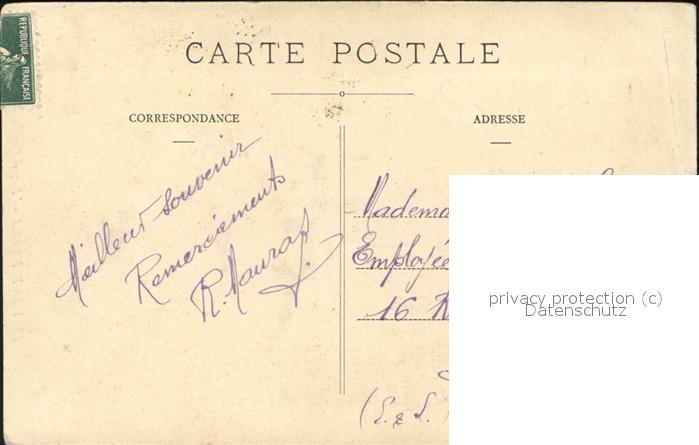 REPUBLIQUE FRANÇAISE
CARTE POSTALE
CORRESPONDANCE
ADRESSE
Meilleur souvenir
Remerciements
R. Mauras
Madem
Employée
16 R
(E. & L.
privacy protection (c)
Datenschutz